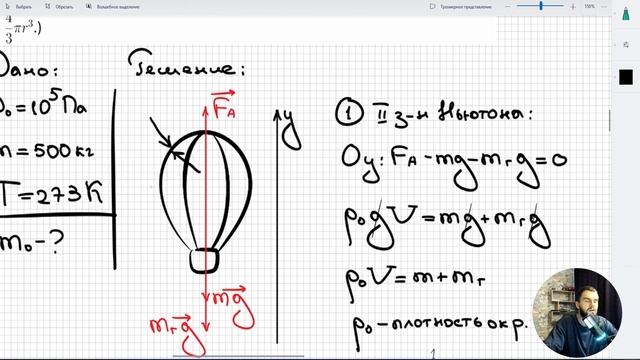 Выбрать Стереть Волшебное выделение Трехмерное представление 150%
4/3 πr³.)
Дано:
p₀ = 10⁵ Па
m = 500 кг
T = 273 K
m₀ - ?
Решение:
F_A
y
mg
m_г g
① II з-н Ньютона:
Oy: F_A - mg - m_г g = 0
ρ₀gV = mg + m_г g
ρ₀V = m + m_г
ρ₀ - плотность окр.